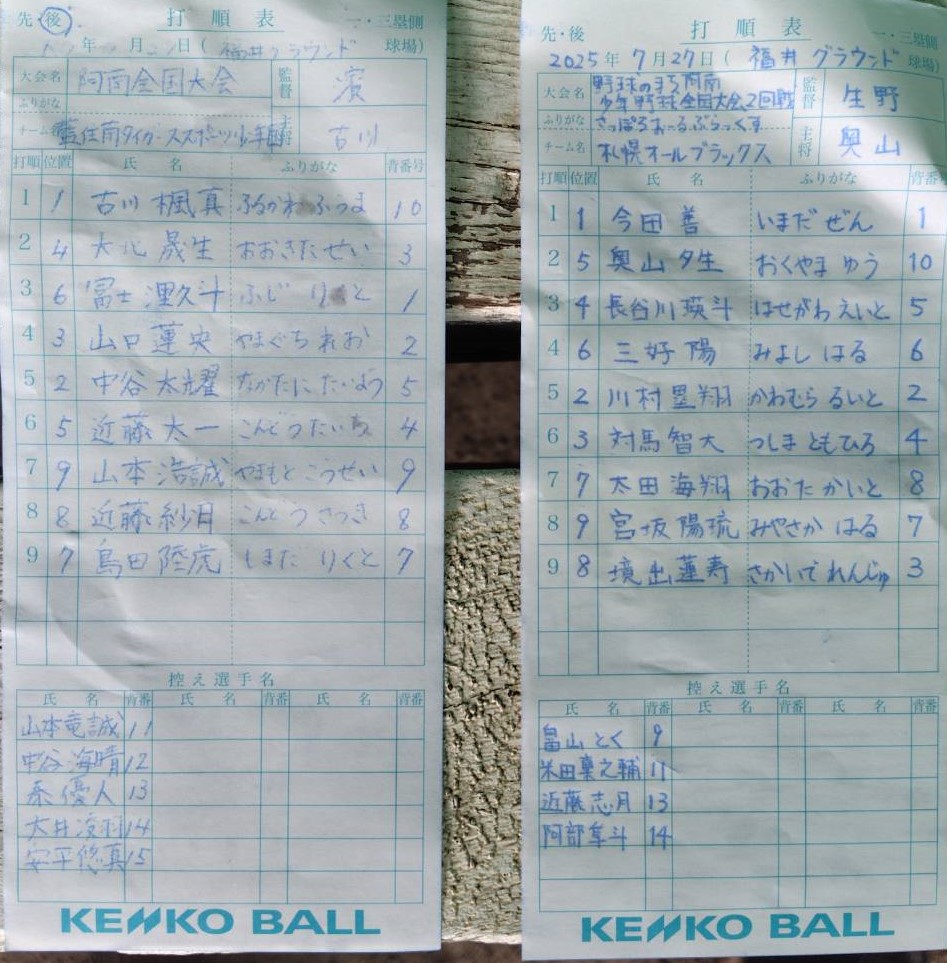 打順表
先・後
一・三塁側
年 月 日(福井グラウンド 球場)
大会名 阿南全国大会 監督 濱
ふりがな
チーム名 住南タイガーススポーツ少年団 主将 古川
打順 位置 氏名 ふりがな 背番号
1 1 古川楓真 ふるかわふうま 10
2 4 大北晟生 おおきたせい 3
3 6 冨士浬久斗 ふじ りくと 1
4 3 山口蓮央 やまぐちれお 2
5 2 中谷太耀 なかたにたいよう 5
6 5 近藤太一 こんどうたいち 4
7 9 山本浩誠 やまもとこうせい 9
8 8 近藤紗月 こんどうさつき 8
9 7 島田陸虎 しまだ りくと 7
控え選手名
氏名 背番 氏名 背番 氏名 背番
山本竜誠 11
中谷海晴 12
優人 13
大井凌羽 14
安平悠真 15
KENKO BALL
打順表
先・後
一・三塁側
2025年7月27日(福井グラウンド 球場)
大会名 野球のまち阿南 少年野球全国大会2回戦 監督 生野
ふりがな さっぽろおーるぶらっくす
チーム名 札幌オールブラックス 主将 奥山
打順 位置 氏名 ふりがな 背番
1 1 今田善 いまだ ぜん 1
2 5 奥山夕生 おくやま ゆう 10
3 4 長谷川瑛斗 はせがわ えいと 5
4 6 三好陽 みよし はる 6
5 2 川村塁翔 かわむら るいと 2
6 3 対馬智大 つしま ともひろ 4
7 7 太田海翔 おおた かいと 8
8 9 宮坂陽琉 みやさか はる 7
9 8 境出蓮寿 さかいで れんじゅ 3
控え選手名
氏名 背番 氏名 背番 氏名 背番
畠山とく 9
米田稟之輔 11
近藤志月 13
阿部 斗 14
KENKO BALL